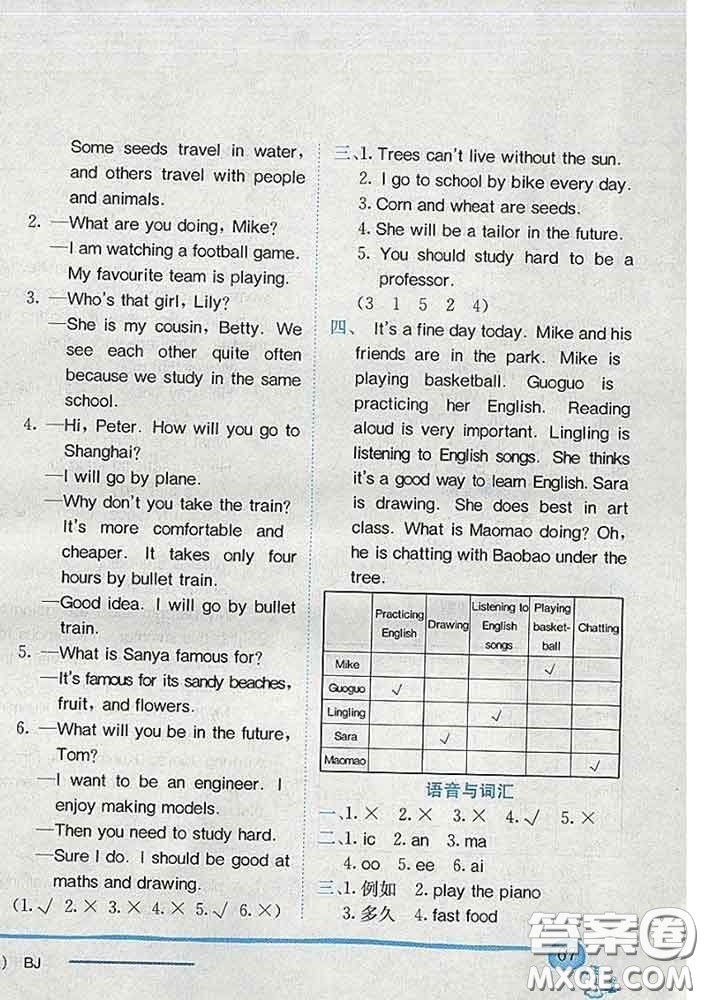 Some seeds travel in water,
and others travel with people
and animals.
2. —What are you doing, Mike?
—I am watching a football game.
My favourite team is playing.
3. —Who's that girl, Lily?
—She is my cousin, Betty. We
see each other quite often
because we study in the same
school.
4. —Hi, Peter. How will you go to
Shanghai?
—I will go by plane.
—Why don't you take the train?
It's more comfortable and
cheaper. It takes only four
hours by bullet train.
—Good idea. I will go by bullet
train.
5. —What is Sanya famous for?
—It's famous for its sandy beaches,
fruit, and flowers.
6. —What will you be in the future,
Tom?
—I want to be an engineer. I
enjoy making models.
—Then you need to study hard.
—Sure I do. I should be good at
maths and drawing.
(1. √ 2. × 3. × 4. × 5. √ 6. ×)
三、1. Trees can't live without the sun.
2. I go to school by bike every day.
3. Corn and wheat are seeds.
4. She will be a tailor in the future.
5. You should study hard to be a
professor.
(3 1 5 2 4)
四、 It's a fine day today. Mike and his
friends are in the park. Mike is
playing basketball. Guoguo is
practicing her English. Reading
aloud is very important. Lingling is
listening to English songs. She thinks
it's a good way to learn English. Sara
is drawing. She does best in art
class. What is Maomao doing? Oh,
he is chatting with Baobao under the
tree.
Practicing English Drawing Listening to English songs Playing basket-ball Chatting
Mike √
Guoguo √
Lingling √
Sara √
Maomao √
语音与词汇
一、1. × 2. × 3. × 4. √ 5. ×
二、1. ic 2. an 3. ma
4. oo 5. ee 6. ai
三、1. 例如 2. play the piano
3. 多久 4. fast food
) BJ
67
答案圈
MXQE.COM